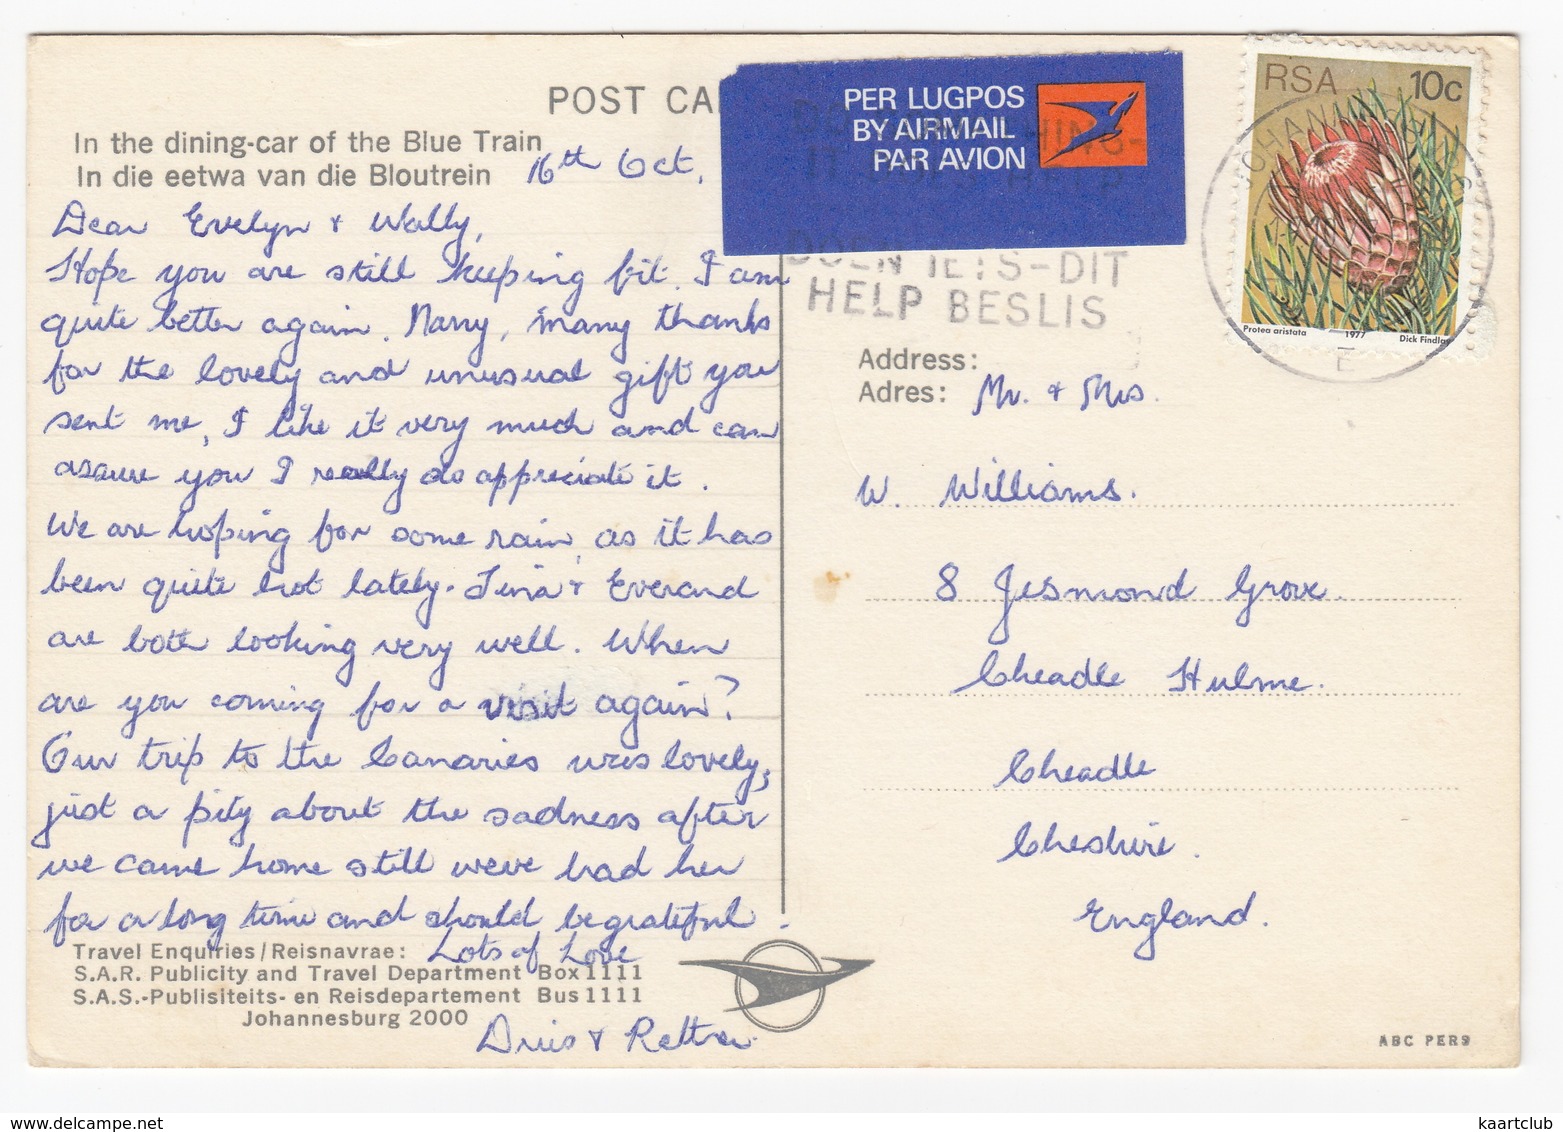 POST CA
In the dining-car of the Blue Train
In die eetwa van die Bloutrein
16th Oct.
Dear Evelyn & Wally,
Hope you are still keeping fit. I am
quite better again. Many, many thanks
for the lovely and unusual gift you
sent me, I like it very much and can
assure you I really do appreciate it.
We are hoping for some rain, as it has
been quite hot lately. Tina & Everard
are both looking very well. When
are you coming for a visit again?
Our trip to the Canaries was lovely,
just a pity about the sadness after
we came home still weve had her
for a long time and should be grateful.
Lots of Love
Travel Enquiries/Reisnavrae:
S.A.R. Publicity and Travel Department Box 1111
S.A.S.-Publisiteits- en Reisdepartement Bus 1111
Johannesburg 2000
PER LUGPOS
BY AIRMAIL
PAR AVION
DOEN IETS-DIT
HELP BESLIS
RSA 10c
Protea aristata 1977 Dick Findlay
JOHANNESBURG
E
Address:
Adres: Mr. & Mrs.
W. Williams.
8 Jesmond Grove.
Cheadle Hulme.
Cheadle
Cheshire.
England.
ABC PERS
kaartclub